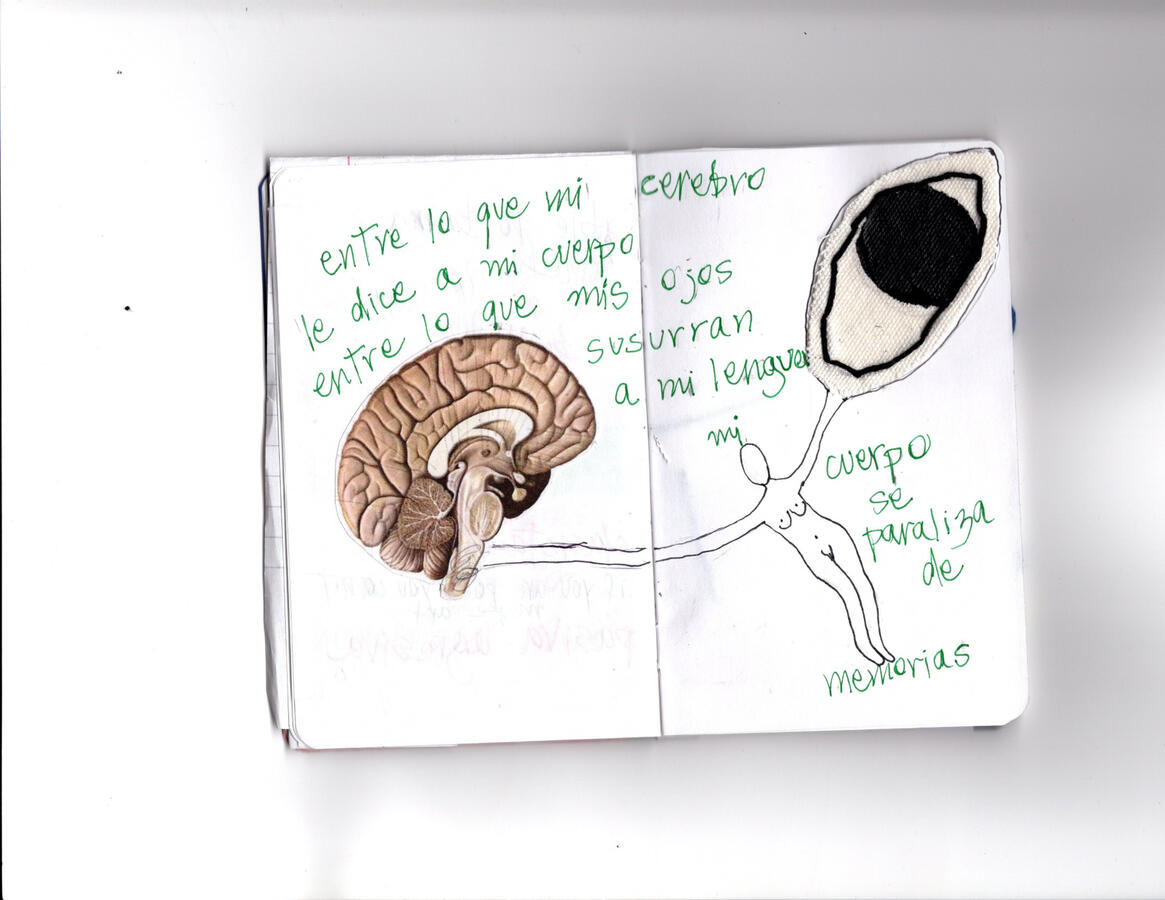 entre lo que mi cerebro
le dice a mi cuerpo
entre lo que mis ojos
susurran
a mi lengua
mi
cuerpo
se
paraliza
de
memorias